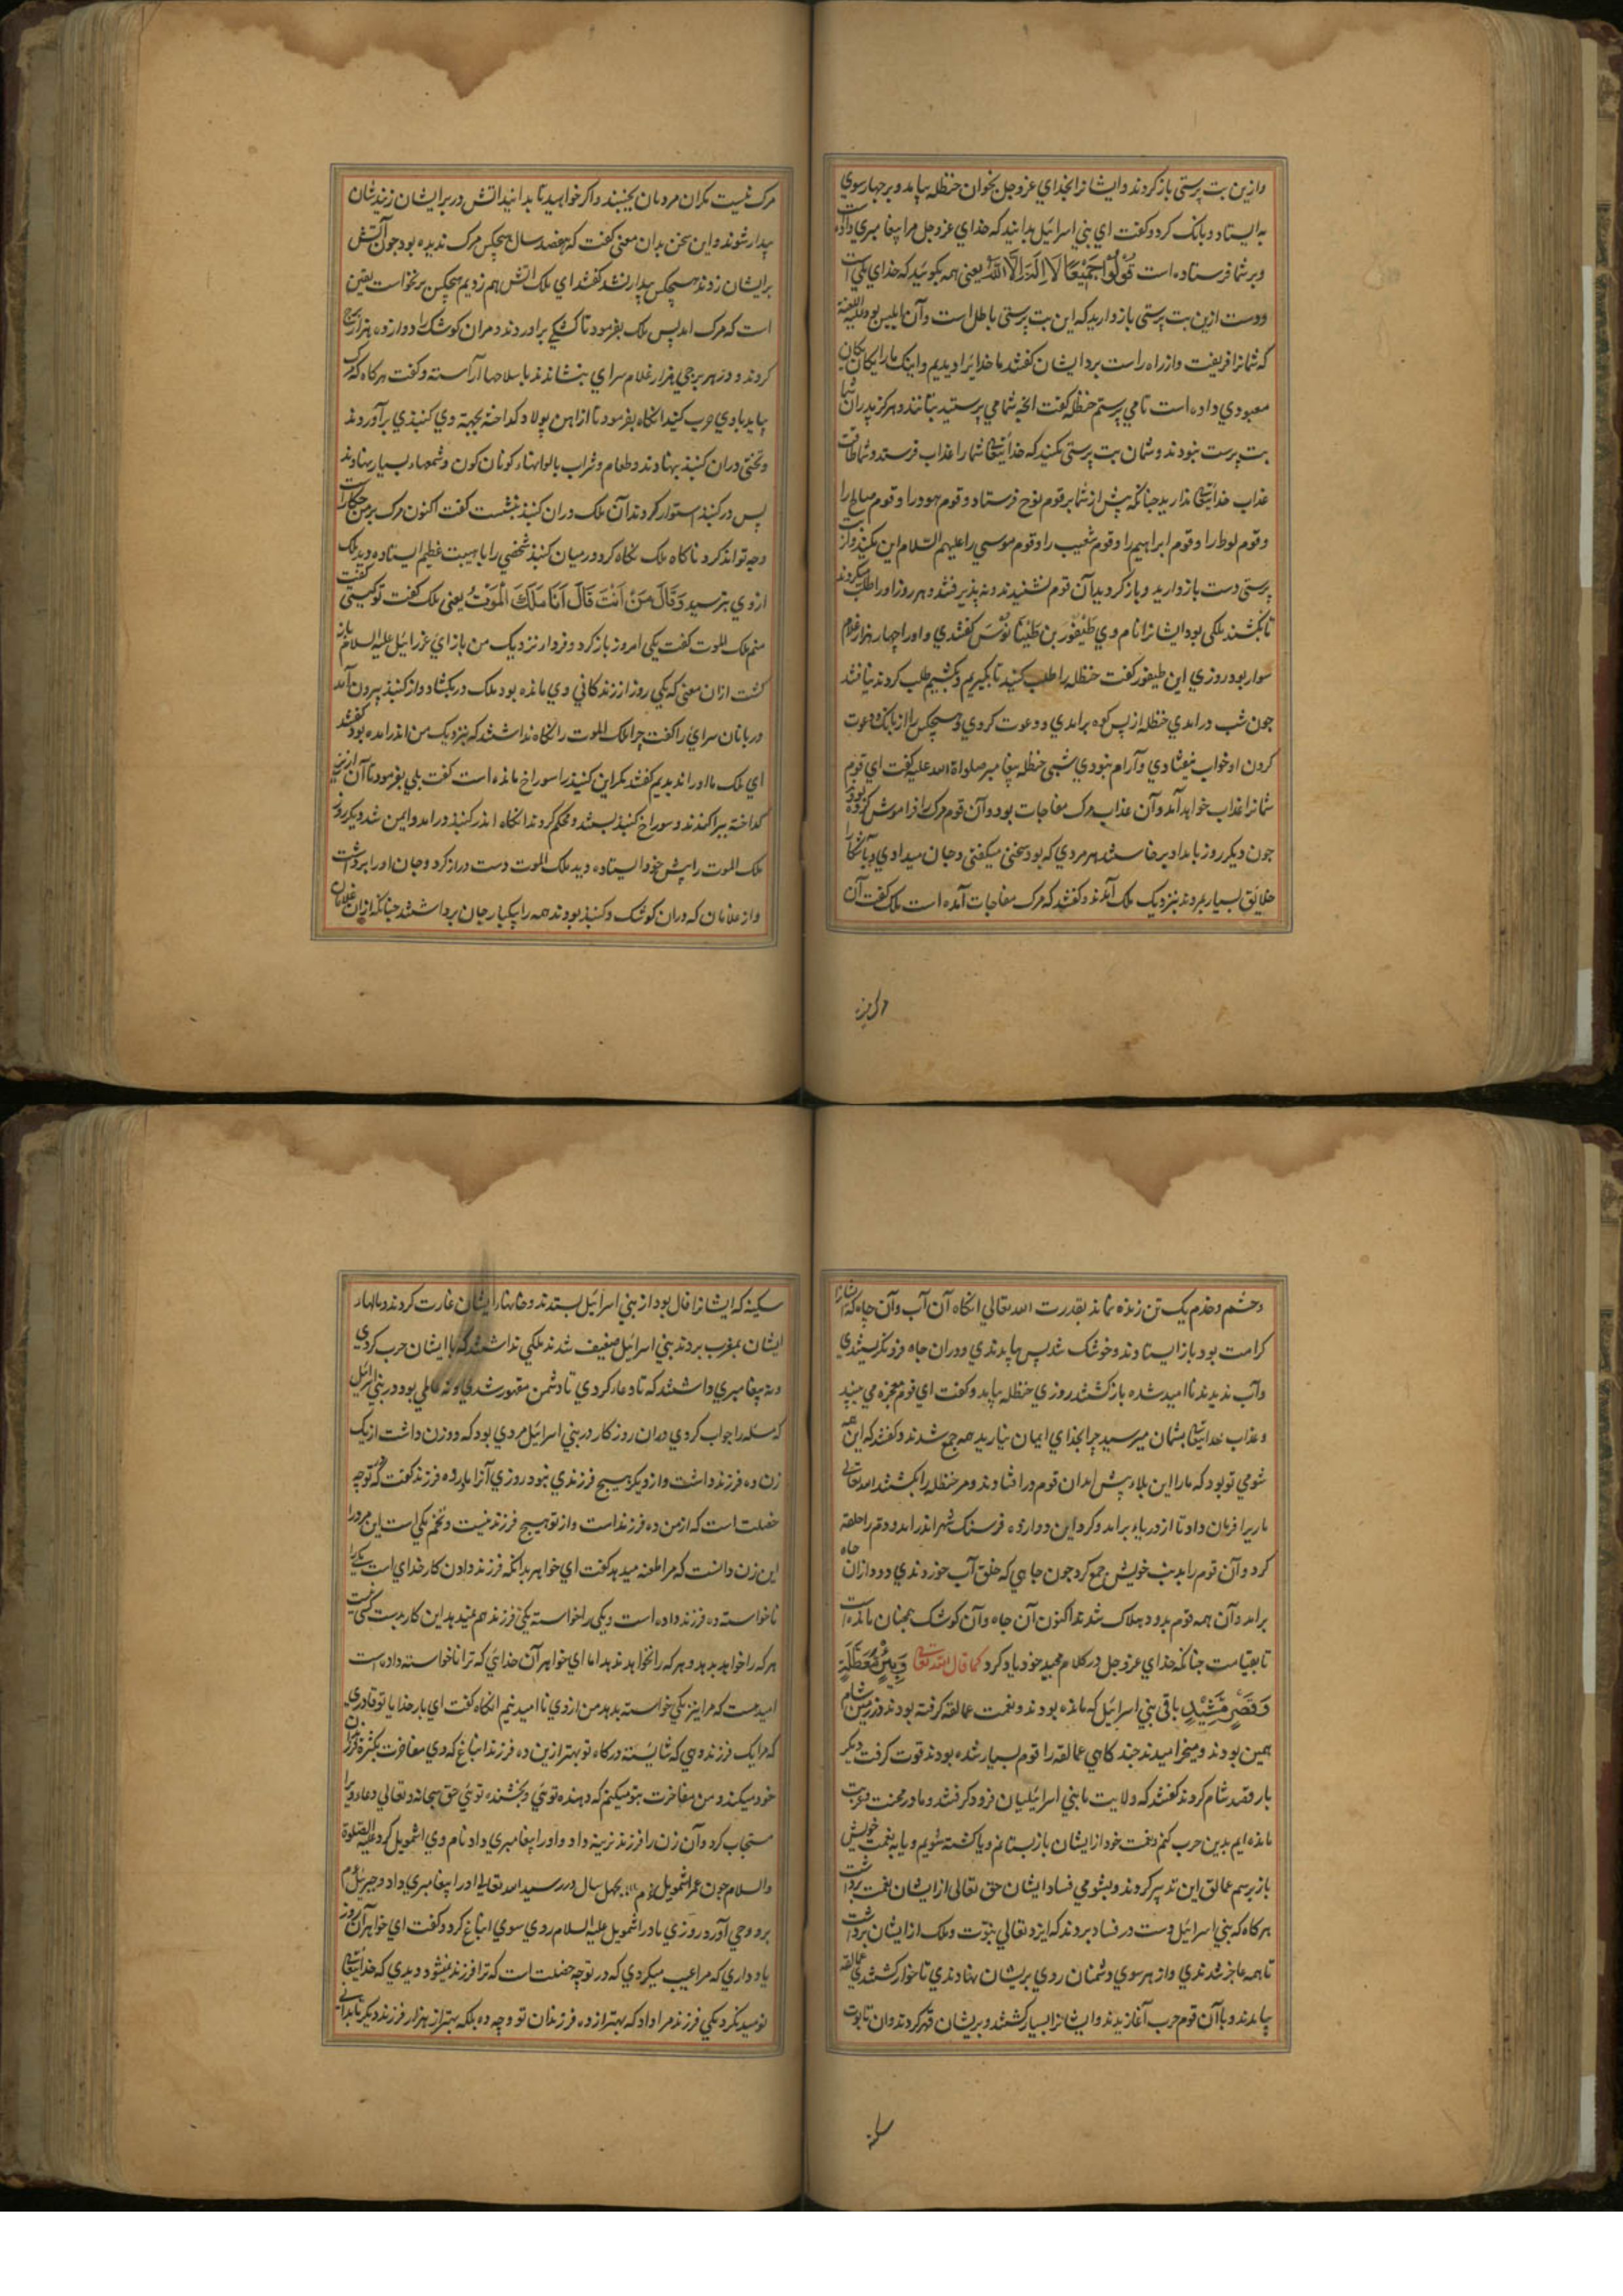 وازین بت پرستی باز کردند وایشانرا بخدای عزوجل بخوان حنظله بیامد و بر چهار سوی
به ایستاد و بانک کرد و کفت ای بنی اسرائیل بدانید که خدای عزوجل مرا پیغامبری داد
وبر شما فرستاده است قُولُوا جَمِيْعًا لَا اِلٰهَ اِلَّا اللّٰهُ یعنی همه بکوئید که خدای یکی است
ودست ازین بت پرستی بازدارید که این بت پرستی باطل است وآن ابلیس بود علیه اللعنه
که شمانرا فریفت واز راه راست برد ایشان کفتند ما خدایرا دیدیم واینک ما را یکان یکان
معبودی داده است تا می پرستیم حنظله کفت انچه شما می پرستید بتانند وهرکز پدران شما
بت پرست نبودند وشمان بت پرستی مکنید که خدایتعالی شما را عذاب فرستد وشما طاقت
عذاب خدایتعالی ندارید چنانکه پیش از شما بر قوم نوح فرستاد و قوم هود را و قوم صالح را
و قوم لوط را و قوم ابراهیم را و قوم شعیب را و قوم موسی را علیهم السلام این مکنید واز بت
پرستی دست بازدارید وباز کردید آن قوم نشنیدند ونه پذیرفتند وهر روز اورا طلب میکردند
تا بکشند ملکی بود ایشانرا نام وی طَیْفُوْر بن طَیْنَانُوْسَ کفتندی و اورا چهار هزار غلام
سوار بود روزی این طیفور کفت حنظله را طلب کنید تا بکیریم و بکشیم طلب کردند نیافتند
چون شب درامدی حنظله از پس کوه برامدی و دعوت کردی وهیچکس را از بانک دعوت
کردن او خواب نیفتادی وآرام نبودی شبی حنظله پیغامبر صلواة الله علیه کفت ای قوم
شمانرا عذاب خواهد آمد وآن عذاب مرک مفاجات بود وآن قوم مرک را فراموش کرده بودند
چون دیکر روز بامداد برخاستند هر مردی که بود سخن میکفتی وجان میدادی وبآشکارا
خلایق بسیار بمردند بنزدیک ملک آمدند وکفتند که مرک مفاجات آمده است ملک کفت آن
مرک نیست مکران مردمان بخسبند واکر خواهید تا بدانید اتش در بر ایشان زنید شان
بیدار شوند واین سخن بدان معنی کفت که هفصد سال هیچکس مرک ندیده بود چون آتش
بر ایشان زدند هیچکس بیدار نشد کفتند ای ملک اتش هم زدیم هیچکس برنخاست یقین
است که مرک امد پس ملک بفرمود تا کشکی براوردند و مران کوشک را دوازده هزار برج
کردند و در هر برجی هزار غلام سرای بنشاندند با سلاحها آراسته وکفت هرکاه که مرک
بیاید باوی حرب کنید انکاه بفرمود تا از اهن پولاد کداخته بجهة وی کنبذی برآوردند
وتختی دران کنبذ بنهادند وطعام وشراب بالوانهاء کوناکون وشمعهاء بسیار بنهادند
پس در کنبذ استوار کردند آن ملک دران کنبذ بنشست کفت اکنون مرک بر من چکار است
وچه تواند کرد ناکاه ملک نکاه کرد در میان کنبذ شخصی را با هیبت عظیم ایستاده دید ملک
ازوی بترسید وَقَالَ مَنْ اَنْتَ قَالَ اَنَا مَلَكُ الْمَوْتُ یعنی ملک کفت توکیستی کفت
منم ملک الموت کفت یکی امروز بازکرد و فردا نزدیک من بازای عزرائیل علیه السلام باز
کشت ازان معنی که یکی روز از زندکانی وی مانده بود ملک در بکشاد واز کنبذ بیرون آمد
دربانان سرای را کفت چرا ملک الموت را نکاه نداشتند که بنزدیک من اندرامده بود کفتند
ای ملک ما اورا ندیدیم کفتند مکر این کنبذ را سوراخ مانده است کفت بلی بفرمود تا آن ارزیز
کداخته بپراکندند وسوراخ کنبذ ببستند ومحکم کردند انکاه اندر کنبذ درامد وایمن شد دیکر روز
ملک الموت را پیش خود ایستاده دید ملک الموت دست دراز کرد وجان اورا برداشت
واز غلامان که دران کوشک وکنبذ بودند همه را بیکبار جان برداشتند چنانکه ازان غلامان
وحشم وخدم یک تن زنده نماند بقدرت الله تعالی انکاه آن آب وآن چاه که ایشانرا
کرامت بود باز ایستادند وخوشک شد پس بیامدندی ودران چاه فرو نکریستندی
وآب ندیدند ناامید شده بازکشتند روزی حنظله بیامد وکفت ای قوم معجزه می بینید
وعذاب خدایتعالی بشمان میرسید چرا بخدای ایمان نیارید همه جمع شدند وکفتند که این همه
شومی تو بود که مارا این بلا پیش امد ان قوم درافتادند ومر حنظله را بکشتند الله تعالی
ماریرا فرمان داد تا از دریا برامد وکرد این دوازده فرسنک شهر اندرامد ودم را حلقه
کرد وآن قوم را بدنب خویش جمع کرد چون جایی که خلق آب خوردندی دود ازان چاه
برامد وآن همه قوم بدود هلاک شدند اکنون آن چاه وآن کوشک همچنان مانده است
تا بقیامت چنانکه خدای عزوجل در کلام مجید خود یاد کرد کما قال الله تعالی وَبِئْرٍ مُعَطَّلَةٍ
وَقَصْرٍ مَشِيْدٍ باقی بنی اسرائیل که مانده بودند ونعمت عمالقه کرفته بودند ودر زمین شام
همین بودند ومیخرامیدند چند کاهی عمالقه را قوم بسیار شده بودند قوت کرفت دیکر
بار قصد شام کردند کفتند که ولایت ما بنی اسرائیلیان فرو کرفتند وما در محنت وغربت
مانده ایم بدین حرب کنیم ونعمت خود از ایشان بازستانیم ویا کشته شویم ویا به نعمت خویش
باز برسیم عمالق این تدبیر کردند وبشومی فساد ایشان حق تعالی از ایشان نعمت برداشت
هرکاه که بنی اسرائیل دست در فساد بردند که ایزد تعالی نبوّت وملک از ایشان برداشت
تا همه عاجز شدندی واز هر سوی دشمنان روی بریشان نهادندی تا خوار کشتندی عمالقه
بیامدند وبا آن قوم حرب آغازیدند وایشانرا بسیار کشتند وبریشان قهر کردند وان تابوت
سکینه که ایشانرا فال بود از بنی اسرائیل بستدند وخانهاء ایشان غارت کردند ومالهاء
ایشان بمغرب بردند بنی اسرائیل ضعیف شدند ملکی نداشتند که با ایشان حرب کردی
ونه پیغامبری داشتند که تا دعا کردی تا دشمن مقهور شدی ونه عاملی بود در بنی اسرائیل
که مسله را جواب کردی دران روزکار در بنی اسرائیل مردی بود که دو زن داشت از یک
زن ده فرزند داشت واز دیکر هیچ فرزندی نبود روزی آنزا مادر ده فرزند کفت که در تو چه
خصلت است که از من ده فرزند است واز تو هیچ فرزند نیست وتخم یکی است این مرد را
این زن دانست که مرا طعنه میدهد کفت ای خواهر بدانکه فرزند دادن کار خدای است یکی را
ناخواسته ده فرزند داده است ویکی را خواسته یکی فرزند هم نمیدهد این کار بدست کسی نیست
هرکه را خواهد بدهد وهرکه را نخواهد ندهد اما ای خواهر آن خدائی که ترا ناخواسته داده است
امید هست که مرا نیز یکی خواسته بدهد من ازوی ناامید نیم انکاه کفت ای بار خدایا تو قادری
که مرا یک فرزند دهی که شایسته درکاه تو بهتر ازین ده فرزند انباغ که وی مفاخرت بکثرة فرزندان
خود میکند ومن مفاخرت بتو میکنم که دهنده توئی وبخشنده توئی حق سبحانه وتعالی دعاء ویرا
مستجاب کرد وآن زن را فرزند نرینه داد واورا پیغامبری داد نام وی اشمویل کرد علیه الصلوة
والسلام چون عمر اشمویل بچهل سال در رسید الله تعالی اورا پیغامبری داد وجبرئیل
برو وحی آورد روزی مادر اشمویل علیه السلام روی سوی انباغ کرد وکفت ای خواهر آن روز
یاد داری که مرا عیب میکردی که در تو چه خصلت است که ترا فرزند نمیشود دیدی که خدایتعالی
نومید نکرد یکی فرزند مرا داد که بهتر از ده فرزندان تو وچه ده بلکه بهتر از هزار فرزند دیکر تا بدانی